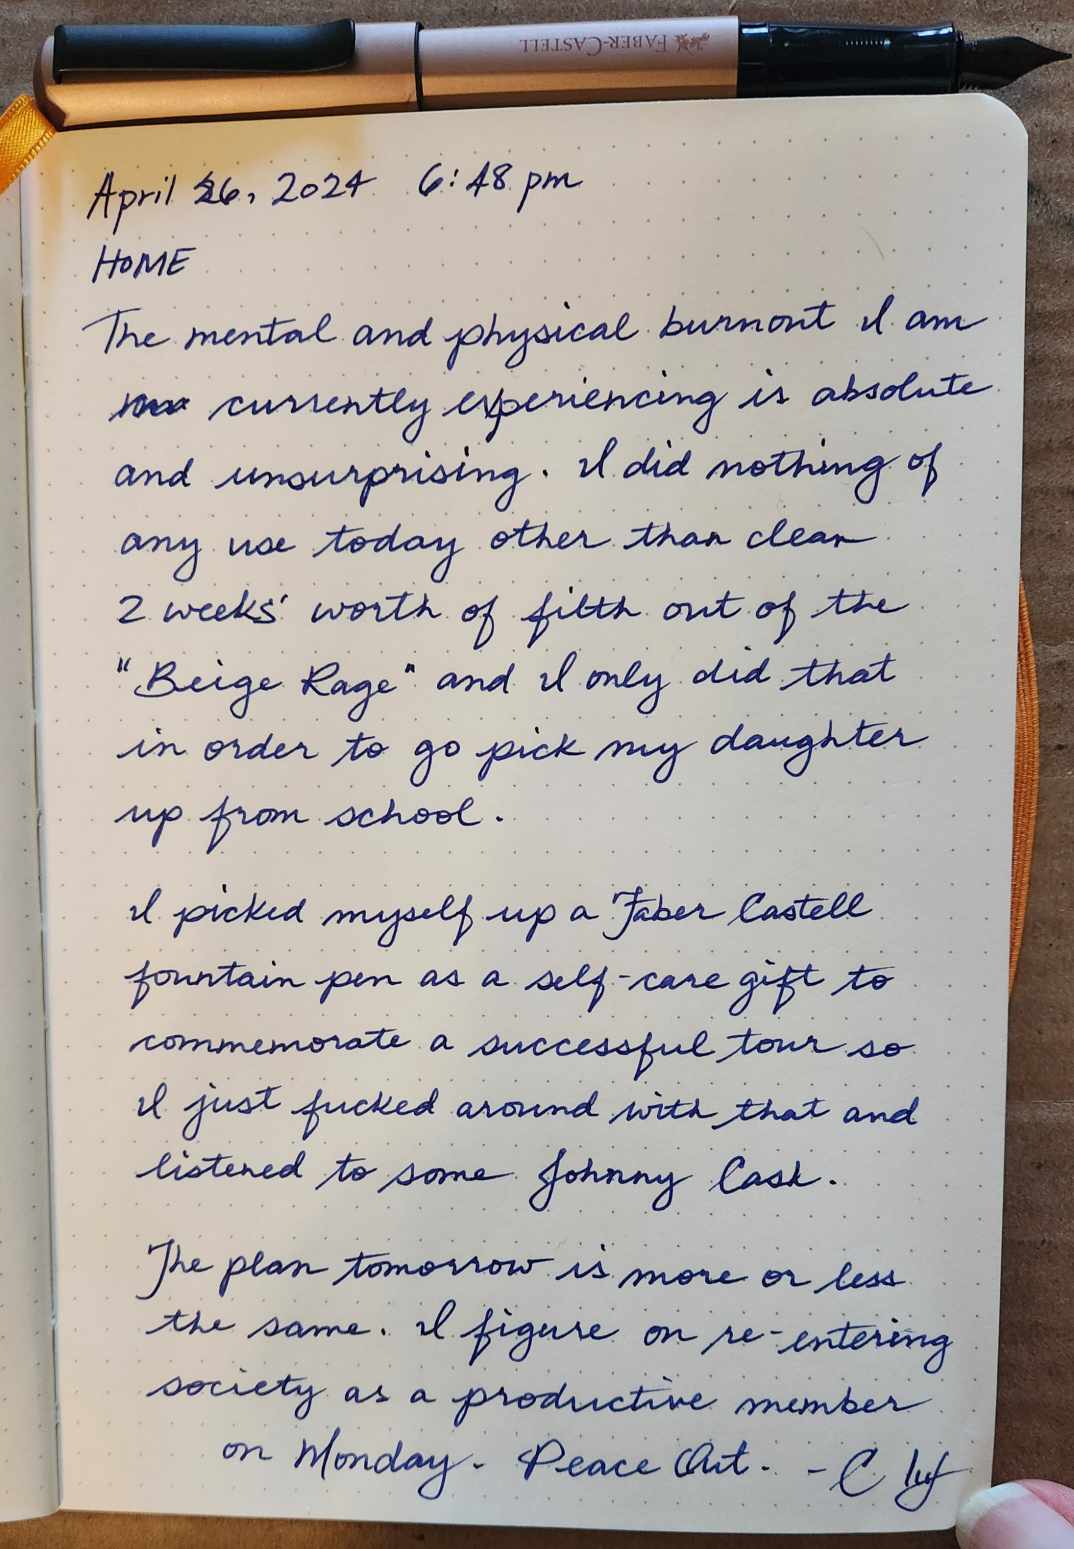 FABER-CASTELL
April 26, 2024 6:48 pm
HOME
The mental and physical burnout I am
currently experiencing is absolute
and unsurprising. I did nothing of
any use today other than clean
2 weeks' worth of filth out of the
"Beige Rage" and I only did that
in order to go pick my daughter
up from school.
I picked myself up a Faber Castell
fountain pen as a self-care gift to
commemorate a successful tour so
I just fucked around with that and
listened to some Johnny Cash.
The plan tomorrow is more or less
the same. I figure on re-entering
society as a productive member
on Monday. Peace Out. - C